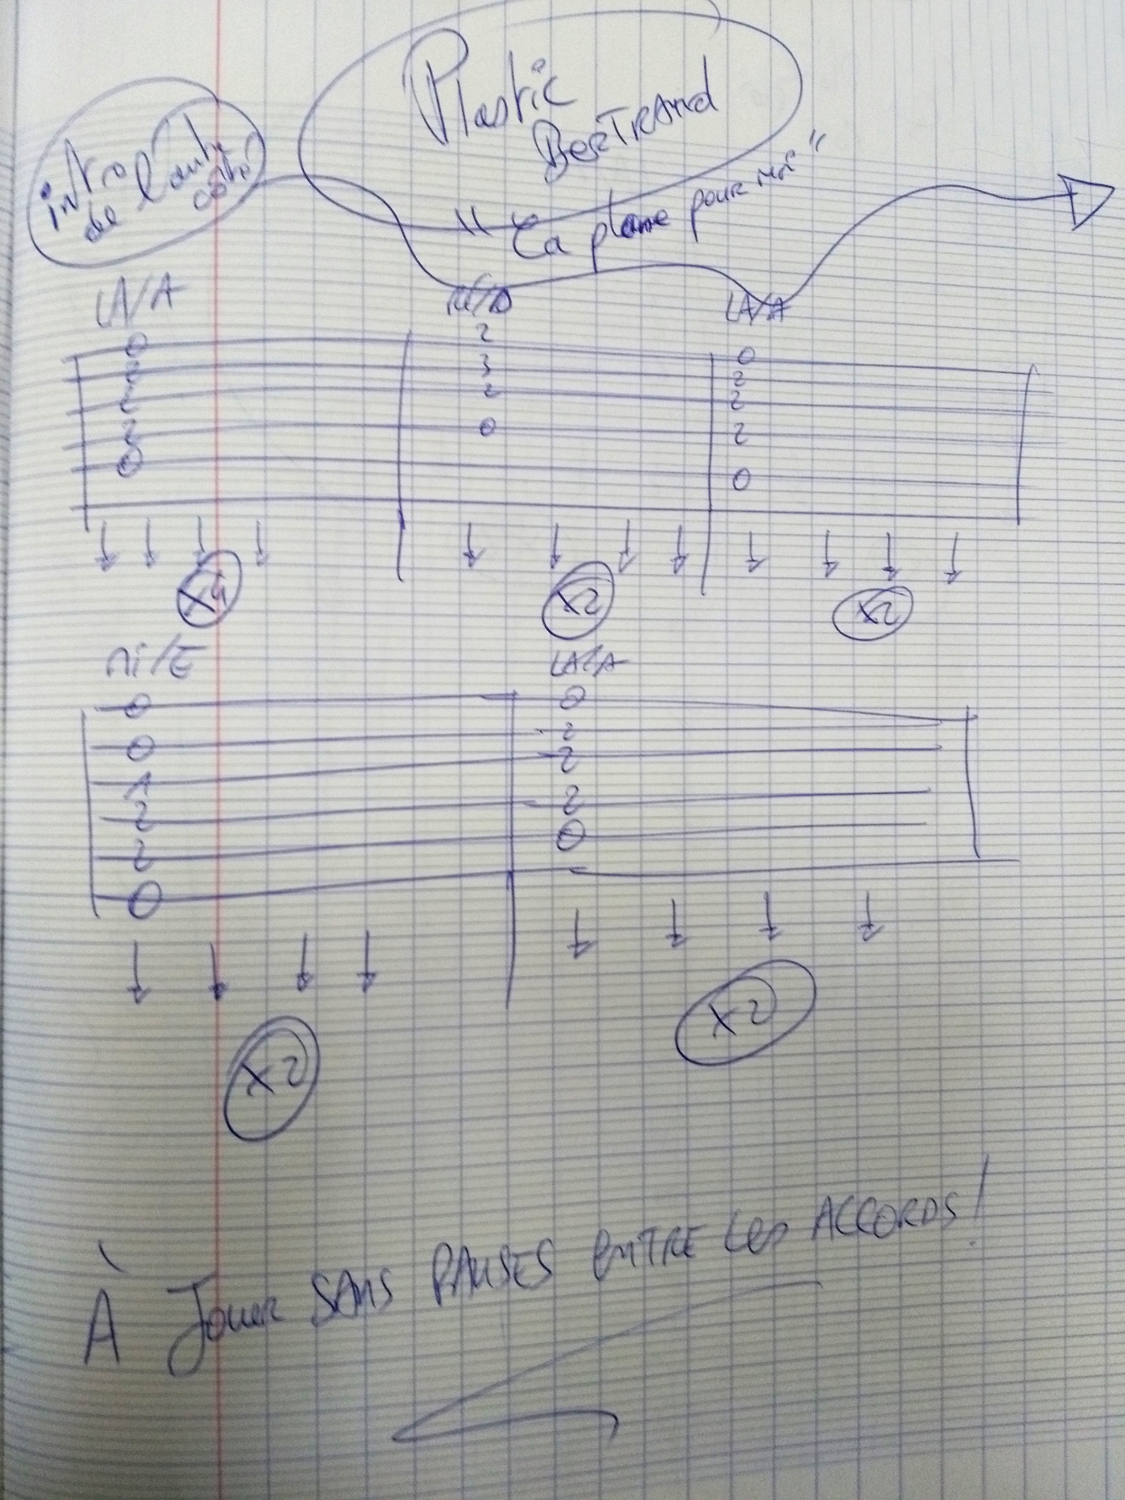 Plastic
BERTRAnd
intro
de l'autre
côté
" Ca plane pour moi "
LA/A
RE/D
LA/A
0
2
2
2
0
2
3
2
0
0
2
2
2
0
↓ ↓ ↓ ↓
↓ ↓ ↓ ↓
↓ ↓ ↓ ↓
X4
X2
X2
Mi/E
LA/A
0
0
1
2
2
0
0
2
2
2
0
↓ ↓ ↓ ↓
↓ ↓ ↓ ↓
X2
X2
À Jouer SANS PAUSES ENTRE Les ACCORDS!